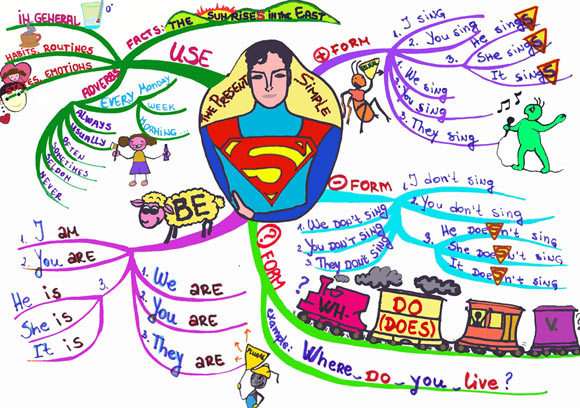 The Present Simple
S
USE
IN GENERAL
0°
FACTS: THE SUN RISES IN THE EAST
HABITS, ROUTINGS
STATES, EMOTIONS
ADVERBS
EVERY MONDAY
WEEK
MORNING...
ALWAYS
USUALLY
OFTEN
SOMETIMES
SELDOM
NEVER
+ FORM
1. I sing
2. You sing
3. He sings
She sings
It sings
1. We sing
2. You sing
3. They sing
- FORM
1. I don't sing
2. You don't sing
3. He doesn't sing
She doesn't sing
It doesn't sing
1. We don't sing
2. You don't sing
3. They dont sing
? FORM
?
WH-
DO
(DOES)
V.
example: Where do you live?
BE
1. I am
2. You are
3.
He is
She is
It is
1. We are
2. You are
3. They are
PLURAL